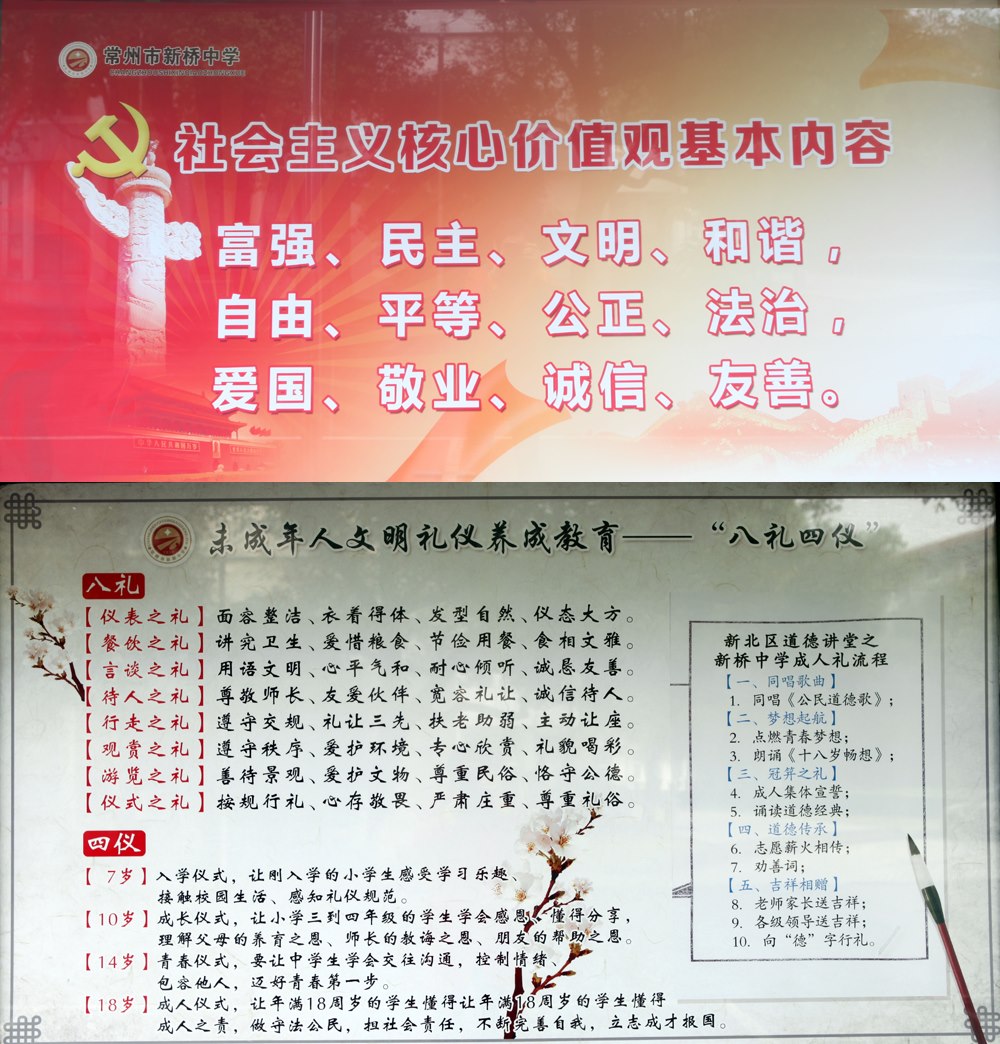 常州市新桥中学
CHANGZHOUSHIXINQIAOZHONGXUE
社会主义核心价值观基本内容
富强、民主、文明、和谐，
自由、平等、公正、法治，
爱国、敬业、诚信、友善。
未成年人文明礼仪养成教育——“八礼四仪”
八礼
【仪表之礼】面容整洁、衣着得体、发型自然、仪态大方。
【餐饮之礼】讲究卫生、爱惜粮食、节俭用餐、食相文雅。
【言谈之礼】用语文明、心平气和、耐心倾听、诚恳友善。
【待人之礼】尊敬师长、友爱伙伴、宽容礼让、诚信待人。
【行走之礼】遵守交规、礼让三先、扶老助弱、主动让座。
【观赏之礼】遵守秩序、爱护环境、专心欣赏、礼貌喝彩。
【游览之礼】善待景观、爱护文物、尊重民俗、恪守公德。
【仪式之礼】按规行礼、心存敬畏、严肃庄重、尊重礼俗。
四仪
【 7岁】入学仪式，让刚入学的小学生感受学习乐趣、
接触校园生活、感知礼仪规范。
【10岁】成长仪式，让小学三到四年级的学生学会感恩、懂得分享，
理解父母的养育之恩、师长的教诲之恩、朋友的帮助之恩。
【14岁】青春仪式，要让中学生学会交往沟通，控制情绪、
包容他人，迈好青春第一步。
【18岁】成人仪式，让年满18周岁的学生懂得让年满18周岁的学生懂得
成人之责，做守法公民，担社会责任，不断完善自我，立志成才报国。
新北区道德讲堂之
新桥中学成人礼流程
【一、同唱歌曲】
1. 同唱《公民道德歌》；
【二、梦想起航】
2. 点燃青春梦想；
3. 朗诵《十八岁畅想》；
【三、冠笄之礼】
4. 成人集体宣誓；
5. 诵读道德经典；
【四、道德传承】
6. 志愿薪火相传；
7. 劝善词；
【五、吉祥相赠】
8. 老师家长送吉祥；
9. 各级领导送吉祥；
10. 向“德”字行礼。